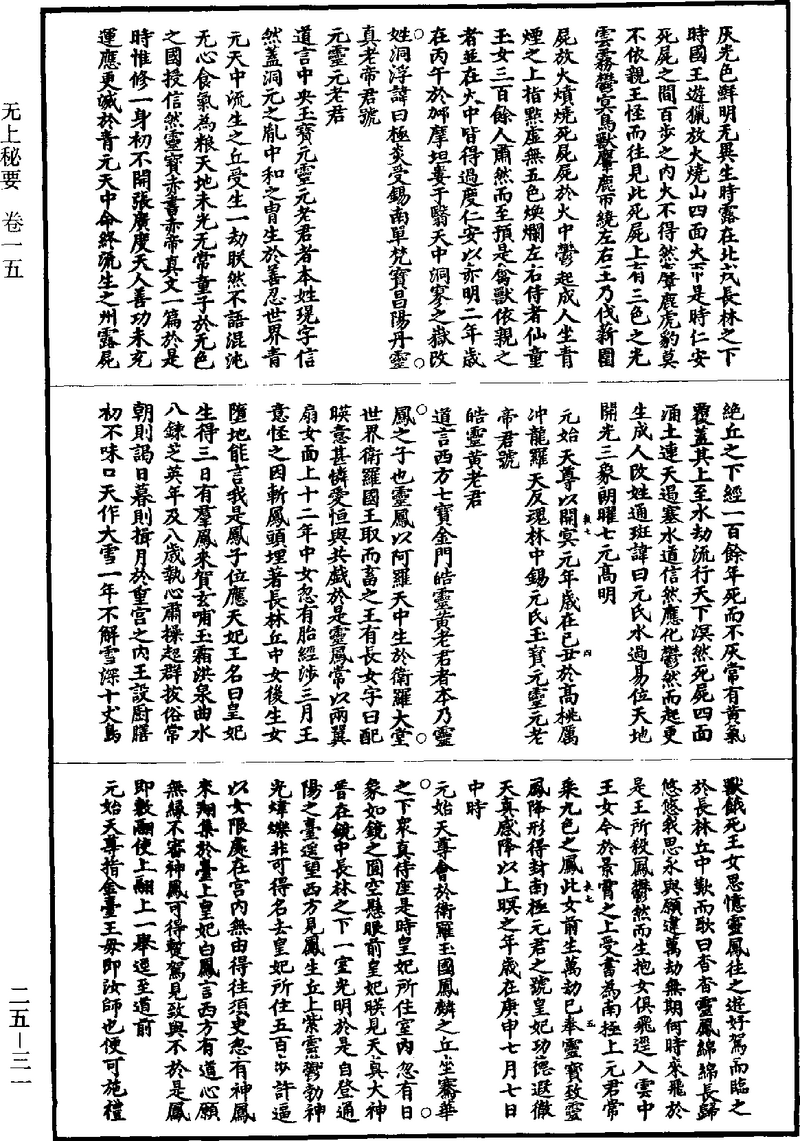 灰光色鮮明无異生時露在北戎長林之下
時國王遊獵放火燒山四面火帀是時仁安
死屍之間百步之內火不得然麞鹿虎豹莫
不依親王怪而往見此死屍上有三色之光
雲霧鬱冥鳥獸麞鹿帀繞左右王乃伐薪圍
屍放火燌燒死屍屍於火中鬱起成人坐青
煙之上指點虛無五色煥爛左右侍者仙童
玉女三百餘人肅然而至預是禽獸依親之
者並在火中皆得過度仁安以赤明二年歲
在丙午於郍摩坦婁于翳天中洞寥之嶽改
姓洞浮諱曰極炎受錫南單梵寶昌陽丹靈
真老帝君號
元靈元老君
道言中央玉寶元靈元老君者本姓琨字信
然蓋洞元之胤中和之胄生於善忍世界青
元天中流生之丘受生一劫眹然不語混沌
无心食氣為粮天地未光无常童子於元色
之國授信然靈寶赤書赤帝真文一篇於是
時惟修一身初不開張廣度天人善功未充
運應更滅於青元天中命終流生之州露屍
絶丘之下經一百餘年死而不灰常有黃氣
覆蓋其上至水劫流行天下溟然死屍四面
涌土連天遏塞水道信然應化鬱然而起更
生成人改姓通班諱曰元氏水過易位天地
開光三象朗曜七元高明
元始天尊以開冥元年歲在己丑於高桃厲
沖龍羅天反魂林中錫元氏玉寶元靈元老
帝君號
皓靈黃老君
道言西方七寶金門皓靈黃老君者本乃靈
鳳之子也靈鳳以阿羅天中生於衛羅大堂
世界衛羅國王取而畜之王有長女字曰配
暎意甚憐愛恒與共戲於是靈鳳常以兩翼
扇女面上十二年中女忽有胎經涉三月王
意怪之因斬鳳頭埋著長林丘中女後生女
墮地能言我是鳳子位應天妃王名曰皇妃
生得三日有羣鳳來賀玄哺玉霜洪泉曲水
八鍊芝英年及八歲執心肅操起群拔俗常
朝則謁日暮則揖月於重宫之内王設厨膳
初不味口天作大雪一年不解雪深十丈鳥
獸餓死王女思憶靈鳳往之遊好駕而臨之
於長林丘中歎而歌曰杳杳靈鳳綿綿長歸
悠悠我思永與願違萬劫無期何時來飛於
是王所殺鳳鬱然而生抱女俱飛逕入雲中
王女今於景霄之上受書為南極上元君常
乘九色之鳳此女前生萬劫已奉靈寶致靈
鳳降形得封南極元君之號皇妃功德遐徹
天真感降以上暝之年歲在庚申七月七日
中時
元始天尊會於衛羅玉國鳳麟之丘坐騫華
之下衆真侍座是時皇妃所住室内忽有日
象如鏡之圓空懸眼前皇妃暎見天真大神
普在鏡中長林之下一室光明於是自登通
陽之臺遥望西方見鳳生丘上紫雲鬱勃神
光煒爍非可得名去皇妃所住五百步許逼
以女限處在宫内無由得往須臾忽有神鳳
來翔集於臺上皇妃白鳳言西方有道心願
無緣不審神鳳可得暫駕見致與不於是鳳
即敷翮使上翮上一舉逕至道前
元始天尊指金臺王母即汝師也便可施禮
无上秘要 卷一五
二五—三一